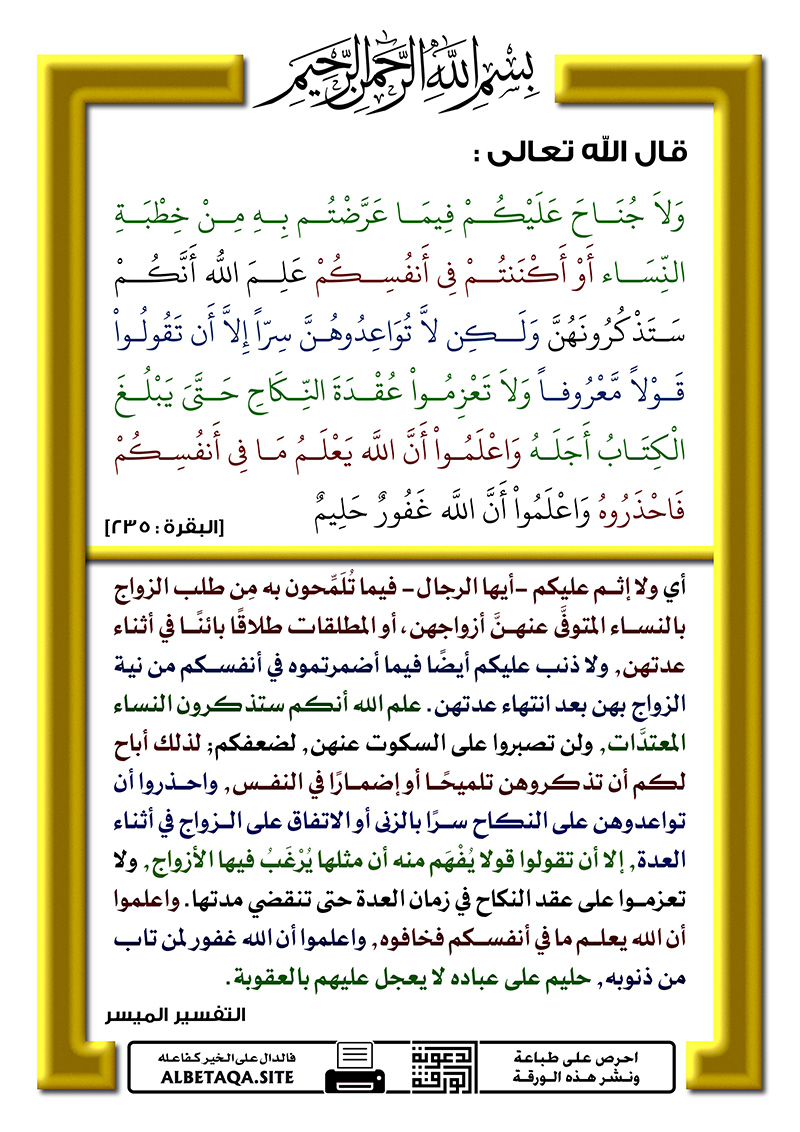 بِسْمِ اللَّهِ الرَّحْمَنِ الرَّحِيمِ
قال الله تعالى :
وَلاَ جُنَاحَ عَلَيْكُمْ فِيمَا عَرَّضْتُم بِهِ مِنْ خِطْبَةِ
النِّسَاء أَوْ أَكْنَنتُمْ فِي أَنفُسِكُمْ عَلِمَ اللّهُ أَنَّكُمْ
سَتَذْكُرُونَهُنَّ وَلَكِن لاَّ تُوَاعِدُوهُنَّ سِرّاً إِلاَّ أَن تَقُولُواْ
قَوْلاً مَّعْرُوفاً وَلاَ تَعْزِمُواْ عُقْدَةَ النِّكَاحِ حَتَّىَ يَبْلُغَ
الْكِتَابُ أَجَلَهُ وَاعْلَمُواْ أَنَّ اللّهَ يَعْلَمُ مَا فِي أَنفُسِكُمْ
فَاحْذَرُوهُ وَاعْلَمُواْ أَنَّ اللّهَ غَفُورٌ حَلِيمٌ [البقرة : ٢٣٥]
أي ولا إثم عليكم -أيها الرجال- فيما تُلَمِّحون به مِن طلب الزواج
بالنساء المتوفَّى عنهنَّ أزواجهن، أو المطلقات طلاقًا بائنًا في أثناء
عدتهن, ولا ذنب عليكم أيضًا فيما أضمرتموه في أنفسكم من نية
الزواج بهن بعد انتهاء عدتهن. علم الله أنكم ستذكرون النساء
المعتدَّات, ولن تصبروا على السكوت عنهن, لضعفكم; لذلك أباح
لكم أن تذكروهن تلميحًا أو إضمارًا في النفس, واحذروا أن
تواعدوهن على النكاح سرًا بالزنى أو الاتفاق على الزواج في أثناء
العدة, إلا أن تقولوا قولا يُفْهَم منه أن مثلها يُرْغَبُ فيها الأزواج, ولا
تعزموا على عقد النكاح في زمان العدة حتى تنقضي مدتها. واعلموا
أن الله يعلم ما في أنفسكم فخافوه, واعلموا أن الله غفور لمن تاب
من ذنوبه, حليم على عباده لا يعجل عليهم بالعقوبة.
التفسير الميسر
احرص على طباعة
ونشر هذه الورقة
الورقة الدعوية
فالدال على الخير كفاعله
ALBETAQA.SITE